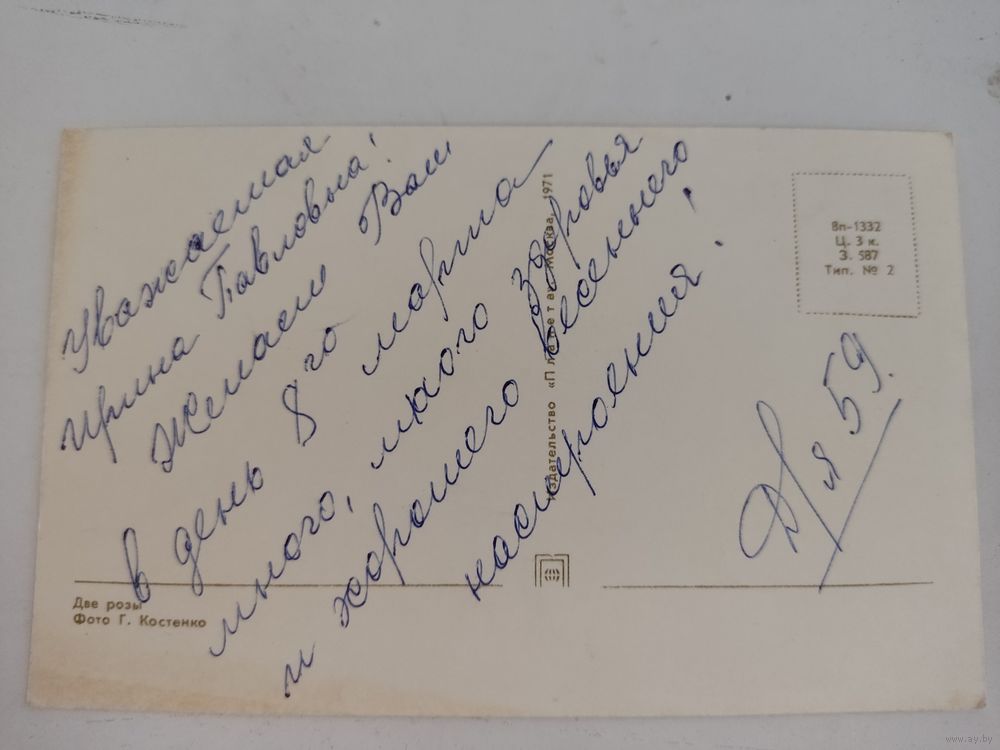 Уважаемая
Ирина Павловна!
Желаем Вам
в день 8го марта
много, много здоровья
и хорошего весеннего
настроения!
Издательство «Планета». Москва, 1971
8п-1332
Ц. 3 к.
З. 587
Тип. № 2
я 59.
Две розы
Фото Г. Костенко
www.ay.by